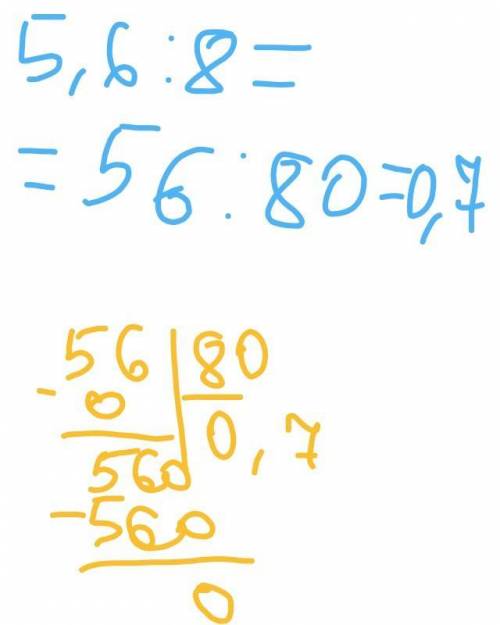 5,6:8=
=56:80=0,7
56 80
- 0 0,7
560
-560
0